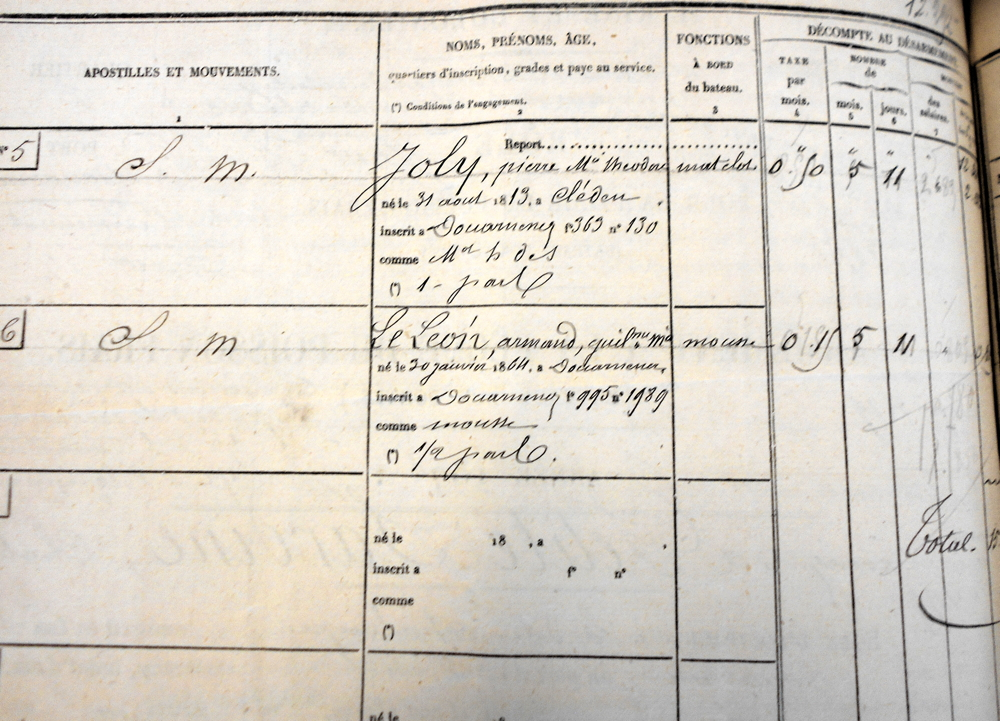 12.
APOSTILLES ET MOUVEMENTS.
1
NOMS, PRÉNOMS, ÂGE,
quartiers d'inscription, grades et paye au service.
(*) Conditions de l'engagement.
2
FONCTIONS
À BORD
du bateau.
3
DÉCOMPTE AU DÉSARMEMENT
TAXE
par
mois.
4
NOMBRE
de
mois.
5
jours.
6
des
salaires.
7
Report
N° 5
S. M.
Joly, pierre Mie theodore matelot 0.50 5 11
né le 31 aout 1813, à Cléden
inscrit à Douarnenez fº 363 nº 130
comme Mot h des
(*) 1 part
6
S. M.
Le Léon, armand, guilme Mie mousse 0.15 5 11
né le 30 janvier 1864, à Douarnenez,
inscrit à Douarnenez fº 995 nº 1989
comme mousse
(*) 1/2 part.
né le 18 , à ,
inscrit à fº nº
comme
(*)
Total.
né le